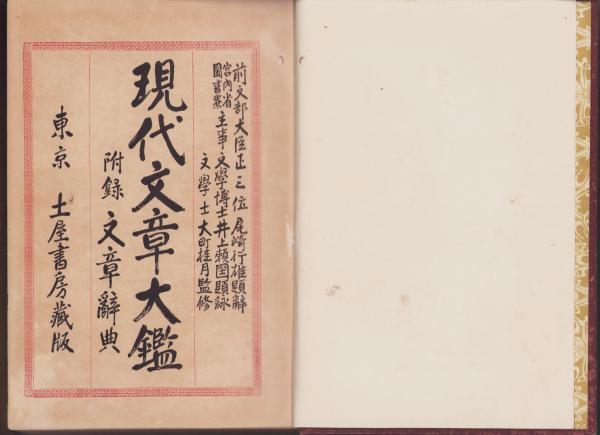 前文部大臣正三位尾崎行雄題辭
宮内省
圖書寮
主事文學博士井上頼圀題詠
文學士大町桂月監修
現代文章大鑑
附録 文章辭典
東京 土屋書房藏版